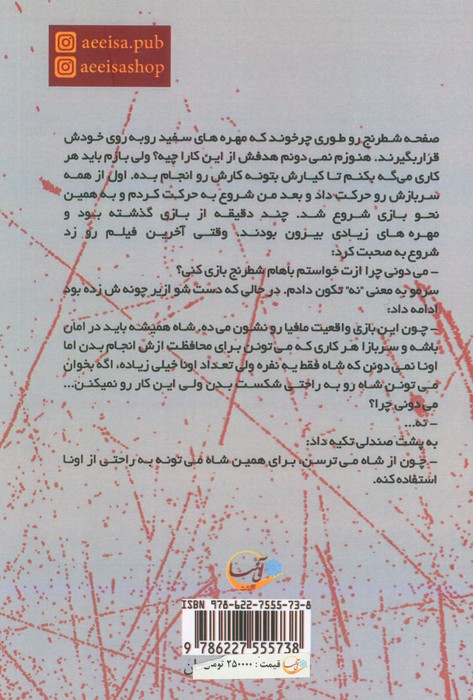 aeeisa.pub
aeeisashop
صفحه شطرنج رو طوری چرخوند که مهره های سفید روبه روی خودش
قراربگیرند. هنوزم نمی دونم هدفش از این کارا چیه؟ ولی بازم باید هر
کاری می‌گه بکنم تا کیارش بتونه کارش رو انجام بده. اول از همه
سربازش رو حرکت داد و بعد من شروع به حرکت کردم و به همین
نحو بازی شروع شد. چند دقیقه از بازی گذشته بود و
مهره های زیادی بیرون بودند، وقتی آخرین فیلم رو زد
شروع به صحبت کرد:
- می دونی چرا ازت خواستم باهام شطرنج بازی کنی؟
سرمو به معنی "نه" تکون دادم. در حالی که دست شو اززیر چونه ش زده بود
ادامه داد:
- چون این بازی واقعیت مافیا رو نشون می ده، شاه همیشه باید در امان
باشه و سربازا هر کاری که می تونن برای محافظت ازش انجام بدن اما
اونا نمی دونن که شاه فقط یه نفره ولی تعداد اونا خیلی زیاده، اگه بخوان
می تونن شاه رو به راحتی شکست بدن ولی این کار رو نمیکنن...
می دونی چرا؟
- نه...
به پشت صندلی تکیه داد:
- چون از شاه می ترسن، برای همین شاه می تونه به راحتی از اونا
استفاده کنه.
ISBN 978-622-7555-73-8
9 786227 555738
قیمت : ۲۵۰۰۰۰ تومان